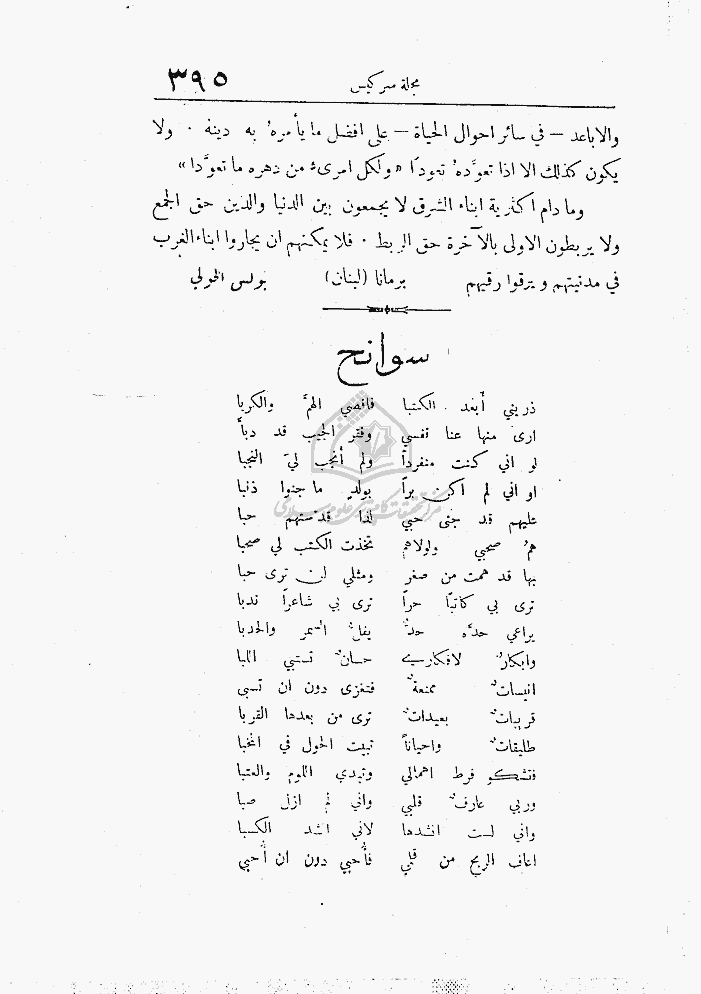 مجلة سركيس ٣٩٥
والاباعد — في سائر احوال الحياة — على افضل ما يأمره ُ به دينهُ ٠ ولا
يكون كذلك الا اذا تعوَّدهُ تعودًا « ولكل امرىء من دهره ما تعوَّدا »
وما دام اكثرية ابناء الشرق لا يجمعون بين الدنيا والدين حق الجمع
ولا يربطون الاولى بالآخرة حق الربط ٠ فلا يمكنهم ان يجاروا ابناء الغرب
في مدنيتهم ويرقوا رقيهم برمانا (لبنان) بولس الخولي
سوانح
ذريني أُبعد الكتبا فاقصي الهمَّ والكربا
ارى منها عنا نفسي وفقر الجيب قد دبأ
لو اني كنت منفرداً ولم أنجب ليَ النجبا
او اني لم اكن براً بولدٍ ما جنوا ذنبا
عليهم قد جنى حبي لذا قدستهم حبا
همُ صحبي ولولاهم تخذت الكتب لي صحبا
بها قد همت من صغر ومثلي لن ترى حبا
ترى بي كاتبًا حراً ترى بي شاعراً ندبا
يراعي حدَّه حدٌّ يفلُّ السمر والحدبا
وابكارٌ لافكاري حسانٌ تستبي اللبا
انيسات ٌ ممنعةٌ فتغزى دون ان تسبى
قريبات ٌ بعيدات ٌ ترى من بعدها القربا
طليقات ٌ واحياناً تبيت الحول في المخبا
فتشكو فرط اهمالي وتبدي اللوم والعتبا
وربي عارف ٌ قلبي واني لم ازل صبا
واني لست انشدها لاني انشد الكسبا
اعاف الربح من قلمي فأُحيي دون ان أُحبى